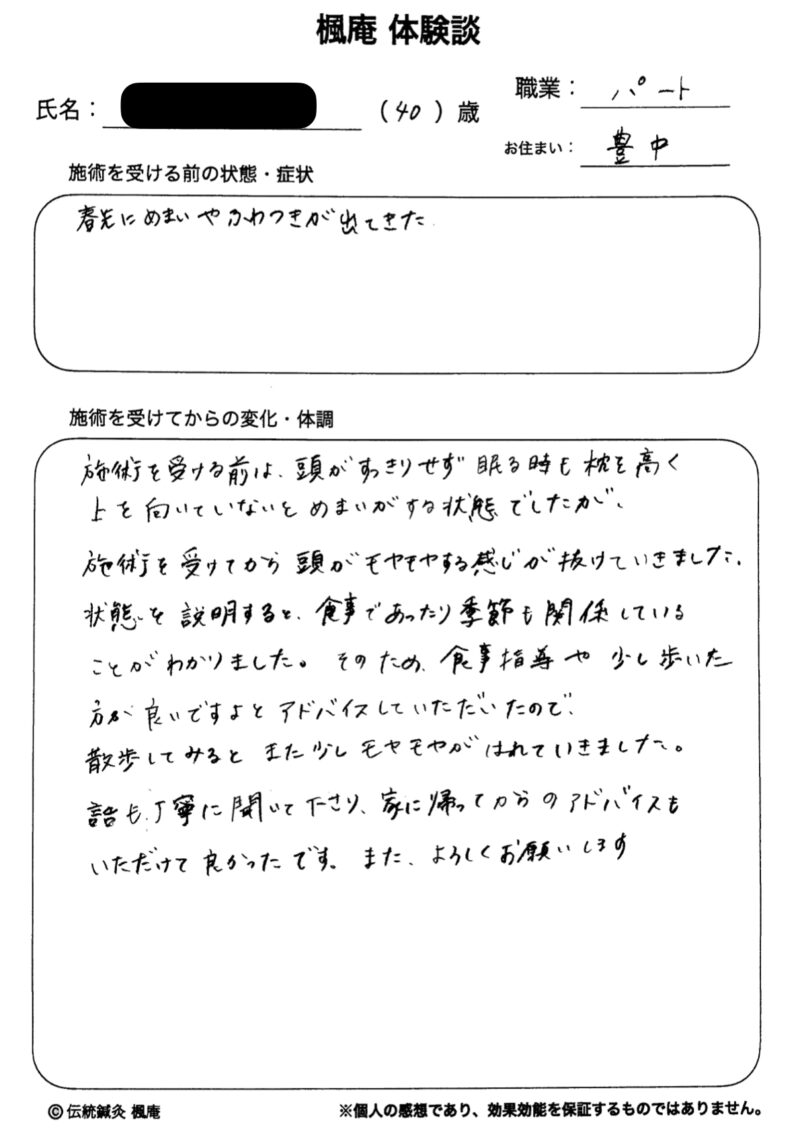 楓庵 体験談
氏名：
（40）歳
職業： パート
お住まい： 豊中
施術を受ける前の状態・症状
春先にめまいやふわつきが出てきた
施術を受けてからの変化・体調
施術を受ける前は、頭がすっきりせず 眠る時も枕を高く
上を向いていないとめまいがする状態でしたが、
施術を受けてから頭がモヤモヤする感じが抜けていきました。
状態を説明すると、食事であったり季節も関係している
ことがわかりました。そのため、食事指導や少し歩いた
方が良いですよとアドバイスしていただいたので、
散歩してみるとまた少しモヤモヤがはれていきました。
話も丁寧に聞いて下さり、家に帰ってからのアドバイスも
いただけて良かったです。また、よろしくお願いします
©伝統鍼灸 楓庵
※個人の感想であり、効果効能を保証するものではありません。